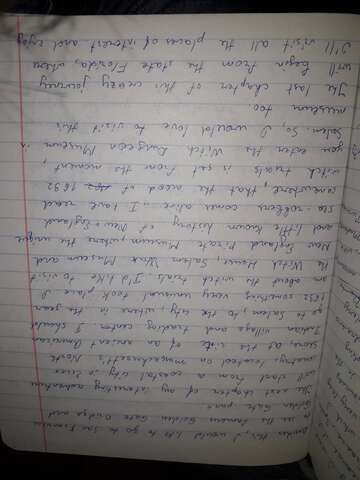 this, I would like to go to San Francisco
to see the famous Golden Gate Bridge and
Golden Gate park.
The next chapter of my interesting adventure
will start from a coastal city in Essex
country, located in Massachusetts, North
Shore, at the site of an ancient American
Indian village and trading center. I should
go to Salem, to the city, where in the year
1692 something very unusual took place. I
am about the witch trials. I'd like to visit
the Witch House, Salem Wax Museum and
New England Pirate Museum, where the unique
and little known history of New England
sea-robbers comes alive... I have read
somewhere, that the mood of 1692
witch trials is set from the moment,
you enter the Witch Dungeon Museum in
Salem, So, I would love to visit this
museum too.
The last chapter of this crazy journey
will begin from the state Florida, where
I'll visit all the places of interest and enjoy